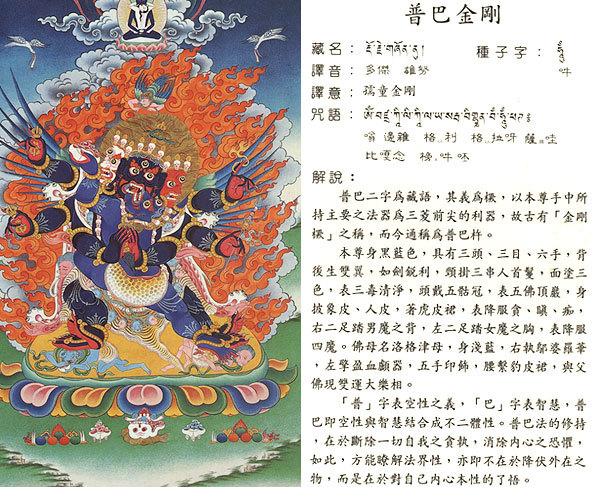 普巴金剛
藏名：རྡོ་རྗེ་གཞོན་ནུ། 種子字：ཧཱུྃ
譯音：多傑 雄努 吽
譯意：孺童金剛
咒語：ཨོཾ་བཛྲ་ཀཱི་ལི་ཀཱི་ལ་ཡ་སརྦ་བིགྷྣན་བཾ་ཧཱུྃ་ཕཊ༔
嗡 邊雜 格利 格拉呀 薩哇
比嘎念 榜吽呸
解說：
普巴二字爲藏語，其義爲橛，以本尊手中所
持主要之法器爲三菱前尖的利器，故古有「金剛
橛」之稱，而今通稱爲普巴杵。
本尊身黑藍色，具有三頭、三目、六手，背
後生雙翼，如劍銳利，頸掛三串人首鬘，面塗三
色，表三毒清淨，頭戴五骷冠，表五佛頂嚴，身
披象皮、人皮，著虎皮裙，表降服貪、瞋、痴，
右二足踏男魔之背，左二足踏女魔之胸，表降服
四魔。佛母名洛格津母，身淺藍，右執鄔婆羅華
，左擎盈血顱器，五手印飾，腰繫豹皮裙，與父
佛現雙運大樂相。
「普」字表空性之義，「巴」字表智慧，普
巴即空性與智慧結合成不二體性。普巴法的修持
，在於斷除一切自我之貪執，消除內心之恐懼，
如此，方能瞭解法界性，亦即不在於降伏外在之
物，而是在於對自己內心本性的了悟。